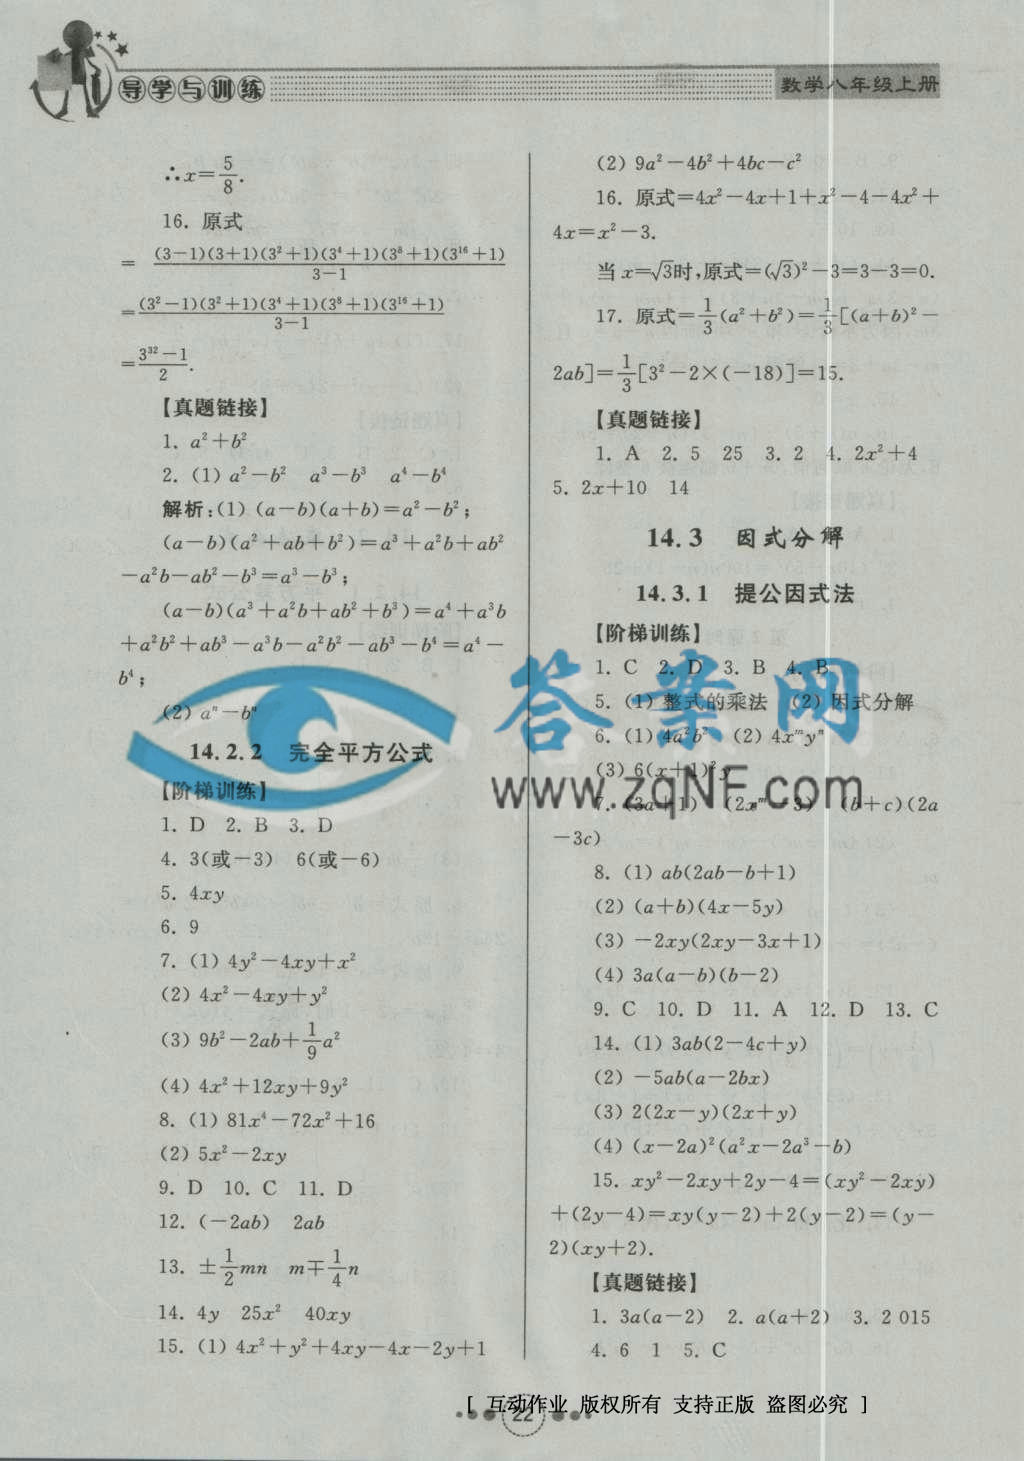 导学与训练
数学八年级上册
∴x=5/8.
16. 原式
= (3-1)(3+1)(3²+1)(3⁴+1)(3⁸+1)(3¹⁶+1)/(3-1)
= (3²-1)(3²+1)(3⁴+1)(3⁸+1)(3¹⁶+1)/(3-1)
= (3³²-1)/2.
【真题链接】
1. a²+b²
2. (1) a²-b²  a³-b³  a⁴-b⁴
解析:(1) (a-b)(a+b)=a²-b²;
(a-b)(a²+ab+b²)=a³+a²b+ab²
-a²b-ab²-b³=a³-b³;
(a-b)(a³+a²b+ab²+b³)=a⁴+a³b
+a²b²+ab³-a³b-a²b²-ab³-b⁴=a⁴-
b⁴;
(2) aⁿ-bⁿ
14.2.2 完全平方公式
【阶梯训练】
1. D 2. B 3. D
4. 3(或-3) 6(或-6)
5. 4xy
6. 9
7. (1) 4y²-4xy+x²
(2) 4x²-4xy+y²
(3) 9b²-2ab+1/9a²
(4) 4x²+12xy+9y²
8. (1) 81x⁴-72x²+16
(2) 5x²-2xy
9. D 10. C 11. D
12. (-2ab) 2ab
13. ±1/2mn m∓1/4n
14. 4y 25x² 40xy
15. (1) 4x²+y²+4xy-4x-2y+1
(2) 9a²-4b²+4bc-c²
16. 原式=4x²-4x+1+x²-4-4x²+
4x=x²-3.
当x=√3时,原式=(√3)²-3=3-3=0.
17. 原式=1/3(a²+b²)=1/3[(a+b)²-
2ab]=1/3[3²-2×(-18)]=15.
【真题链接】
1. A 2. 5 25 3. 2 4. 2x²+4
5. 2x+10 14
14.3 因式分解
14.3.1 提公因式法
【阶梯训练】
1. C 2. D 3. B 4. B
5. (1) 整式的乘法 (2) 因式分解
6. (1) 4a²b² (2) 4xᵐyⁿ
(3) 6(x+1)²y
7. (3a+1) (2xᵐ-3) (b+c)(2a
-3c)
8. (1) ab(2ab-b+1)
(2) (a+b)(4x-5y)
(3) -2xy(2xy-3x+1)
(4) 3a(a-b)(b-2)
9. C 10. D 11. A 12. D 13. C
14. (1) 3ab(2-4c+y)
(2) -5ab(a-2bx)
(3) 2(2x-y)(2x+y)
(4) (x-2a)²(a²x-2a³-b)
15. xy²-2xy+2y-4=(xy²-2xy)
+(2y-4)=xy(y-2)+2(y-2)=(y-
2)(xy+2).
【真题链接】
1. 3a(a-2) 2. a(a+2) 3. 2 015
4. 6 1 5. C
答案网
www.zqNF.com
[ 互动作业 版权所有 支持正版 盗图必究 ]
22